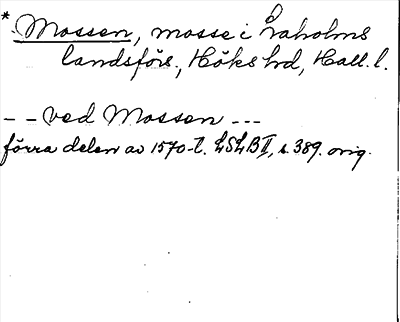 * Mossen, mosse i Laholms
landsförs., Höks hd, Hall. l.
- - ved Mossen - - -
förra delen av 1570-t. LSLB II, s. 389. orig.